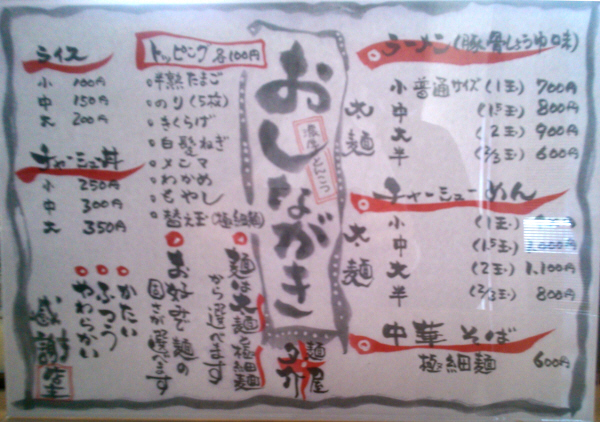 おしながき
ラーメン(豚骨しょうゆ味)
太麺
小 普通サイズ(1玉) 700円
中 (1.5玉) 800円
大 (2玉) 900円
半 (2/3玉) 600円
チャーシューめん
太麺
小 (1玉)
中 (1.5玉) 1.000円
大 (2玉) 1.100円
半 (2/3玉) 800円
中華そば
極細麺 600円
トッピング 各100円
・半熟たまご
・のり(5枚)
・きくらげ
・白髪ねぎ
・メンマ
・わかめ
・もやし
・替え玉(極細麺)
ライス
小 100円
中 150円
大 200円
チャーシュー丼
小 250円
中 300円
大 350円
麺は太麺と極細麺
から選べます
お好みで麺の
固さが選べます
かたい
ふつう
やわらかい
麺屋